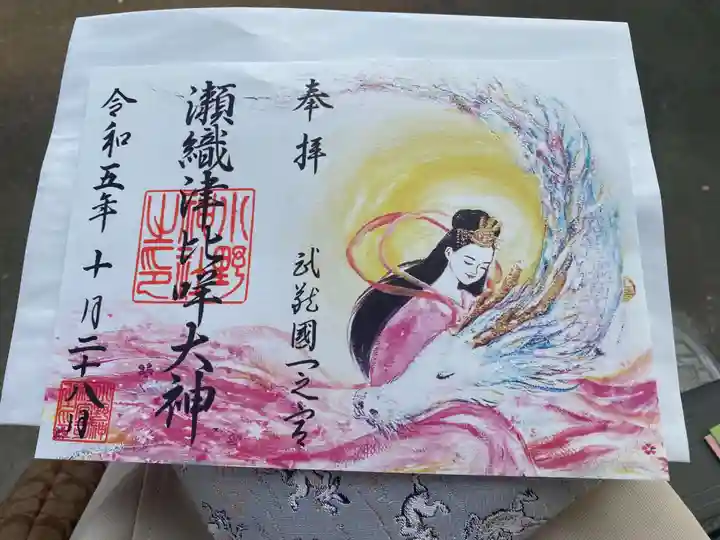 奉拝
武蔵國一之宮
瀬織津比咩大神
令和五年十月二十八日